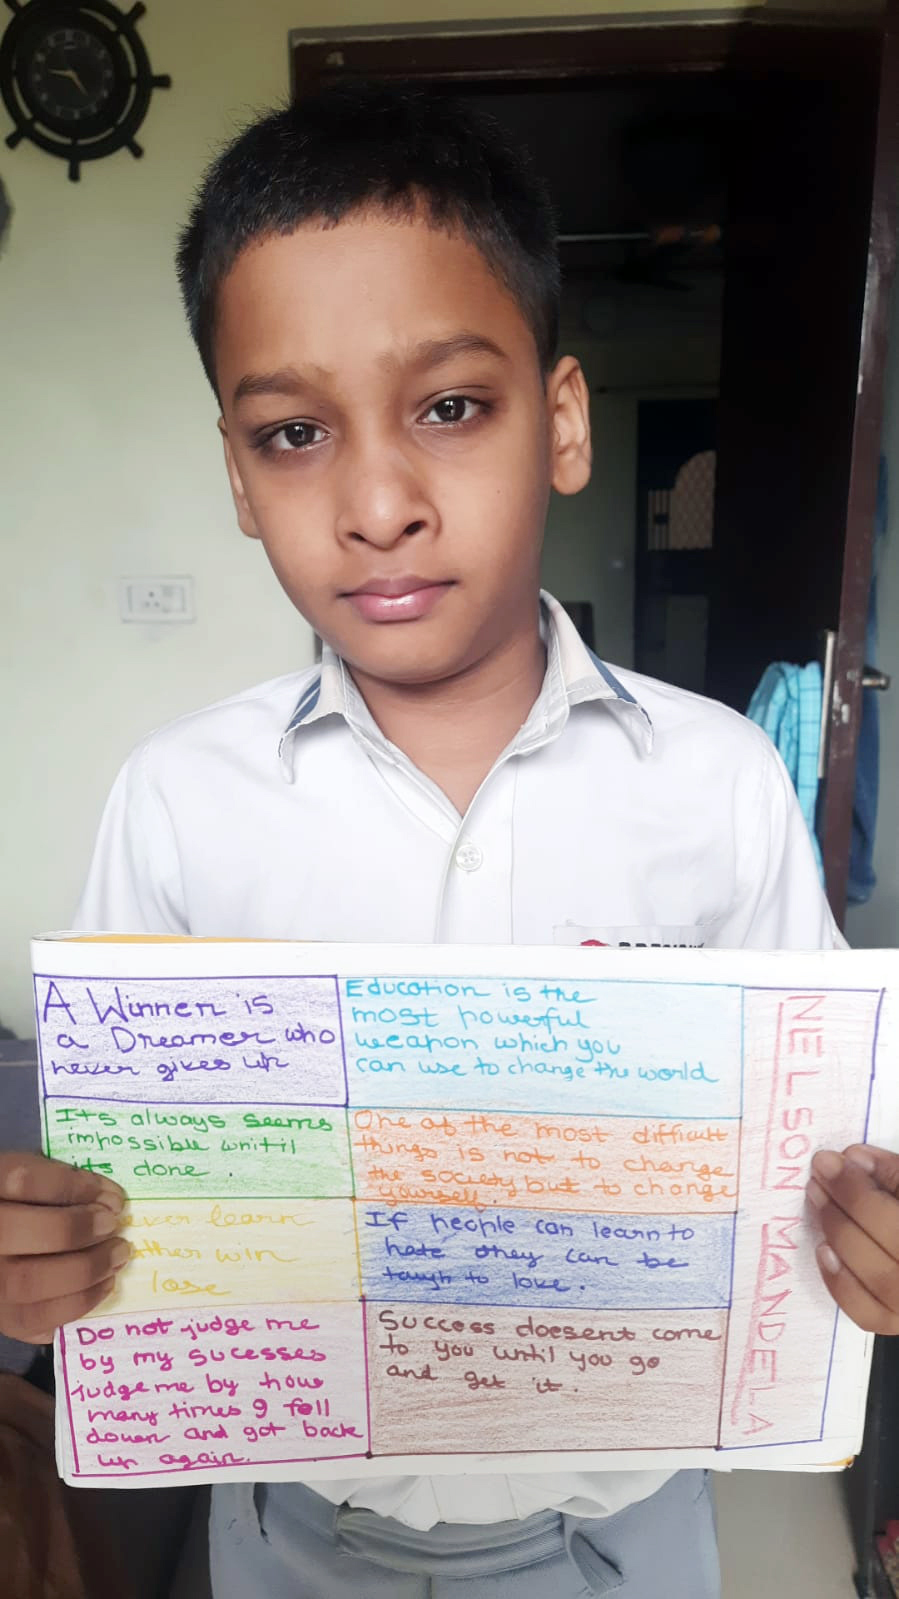 A Winner is
a Dreamer who
never gives up
Education is the
most powerful
weapon which you
can use to change the world
Its always seems
impossible unitil
its done .
One of the most difficult
things is not to change
the society but to change
yourself.
learn
win
lose
If people can learn to
hate they can be
taugh to love.
Do not judge me
by my sucesses
judge me by how
many times I fell
down and got back
up again.
Success doesent come
to you until you go
and get it.
NELSON MANDELA